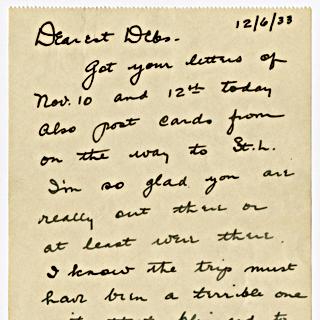 12/6/33
Dearest Debs.
Got your letters of
Nov. 10 and 12th today
Also post cards from
on the way to St. L.
I'm so glad you are
really out there or
at least were there.
I know the trip must
have been a terrible one